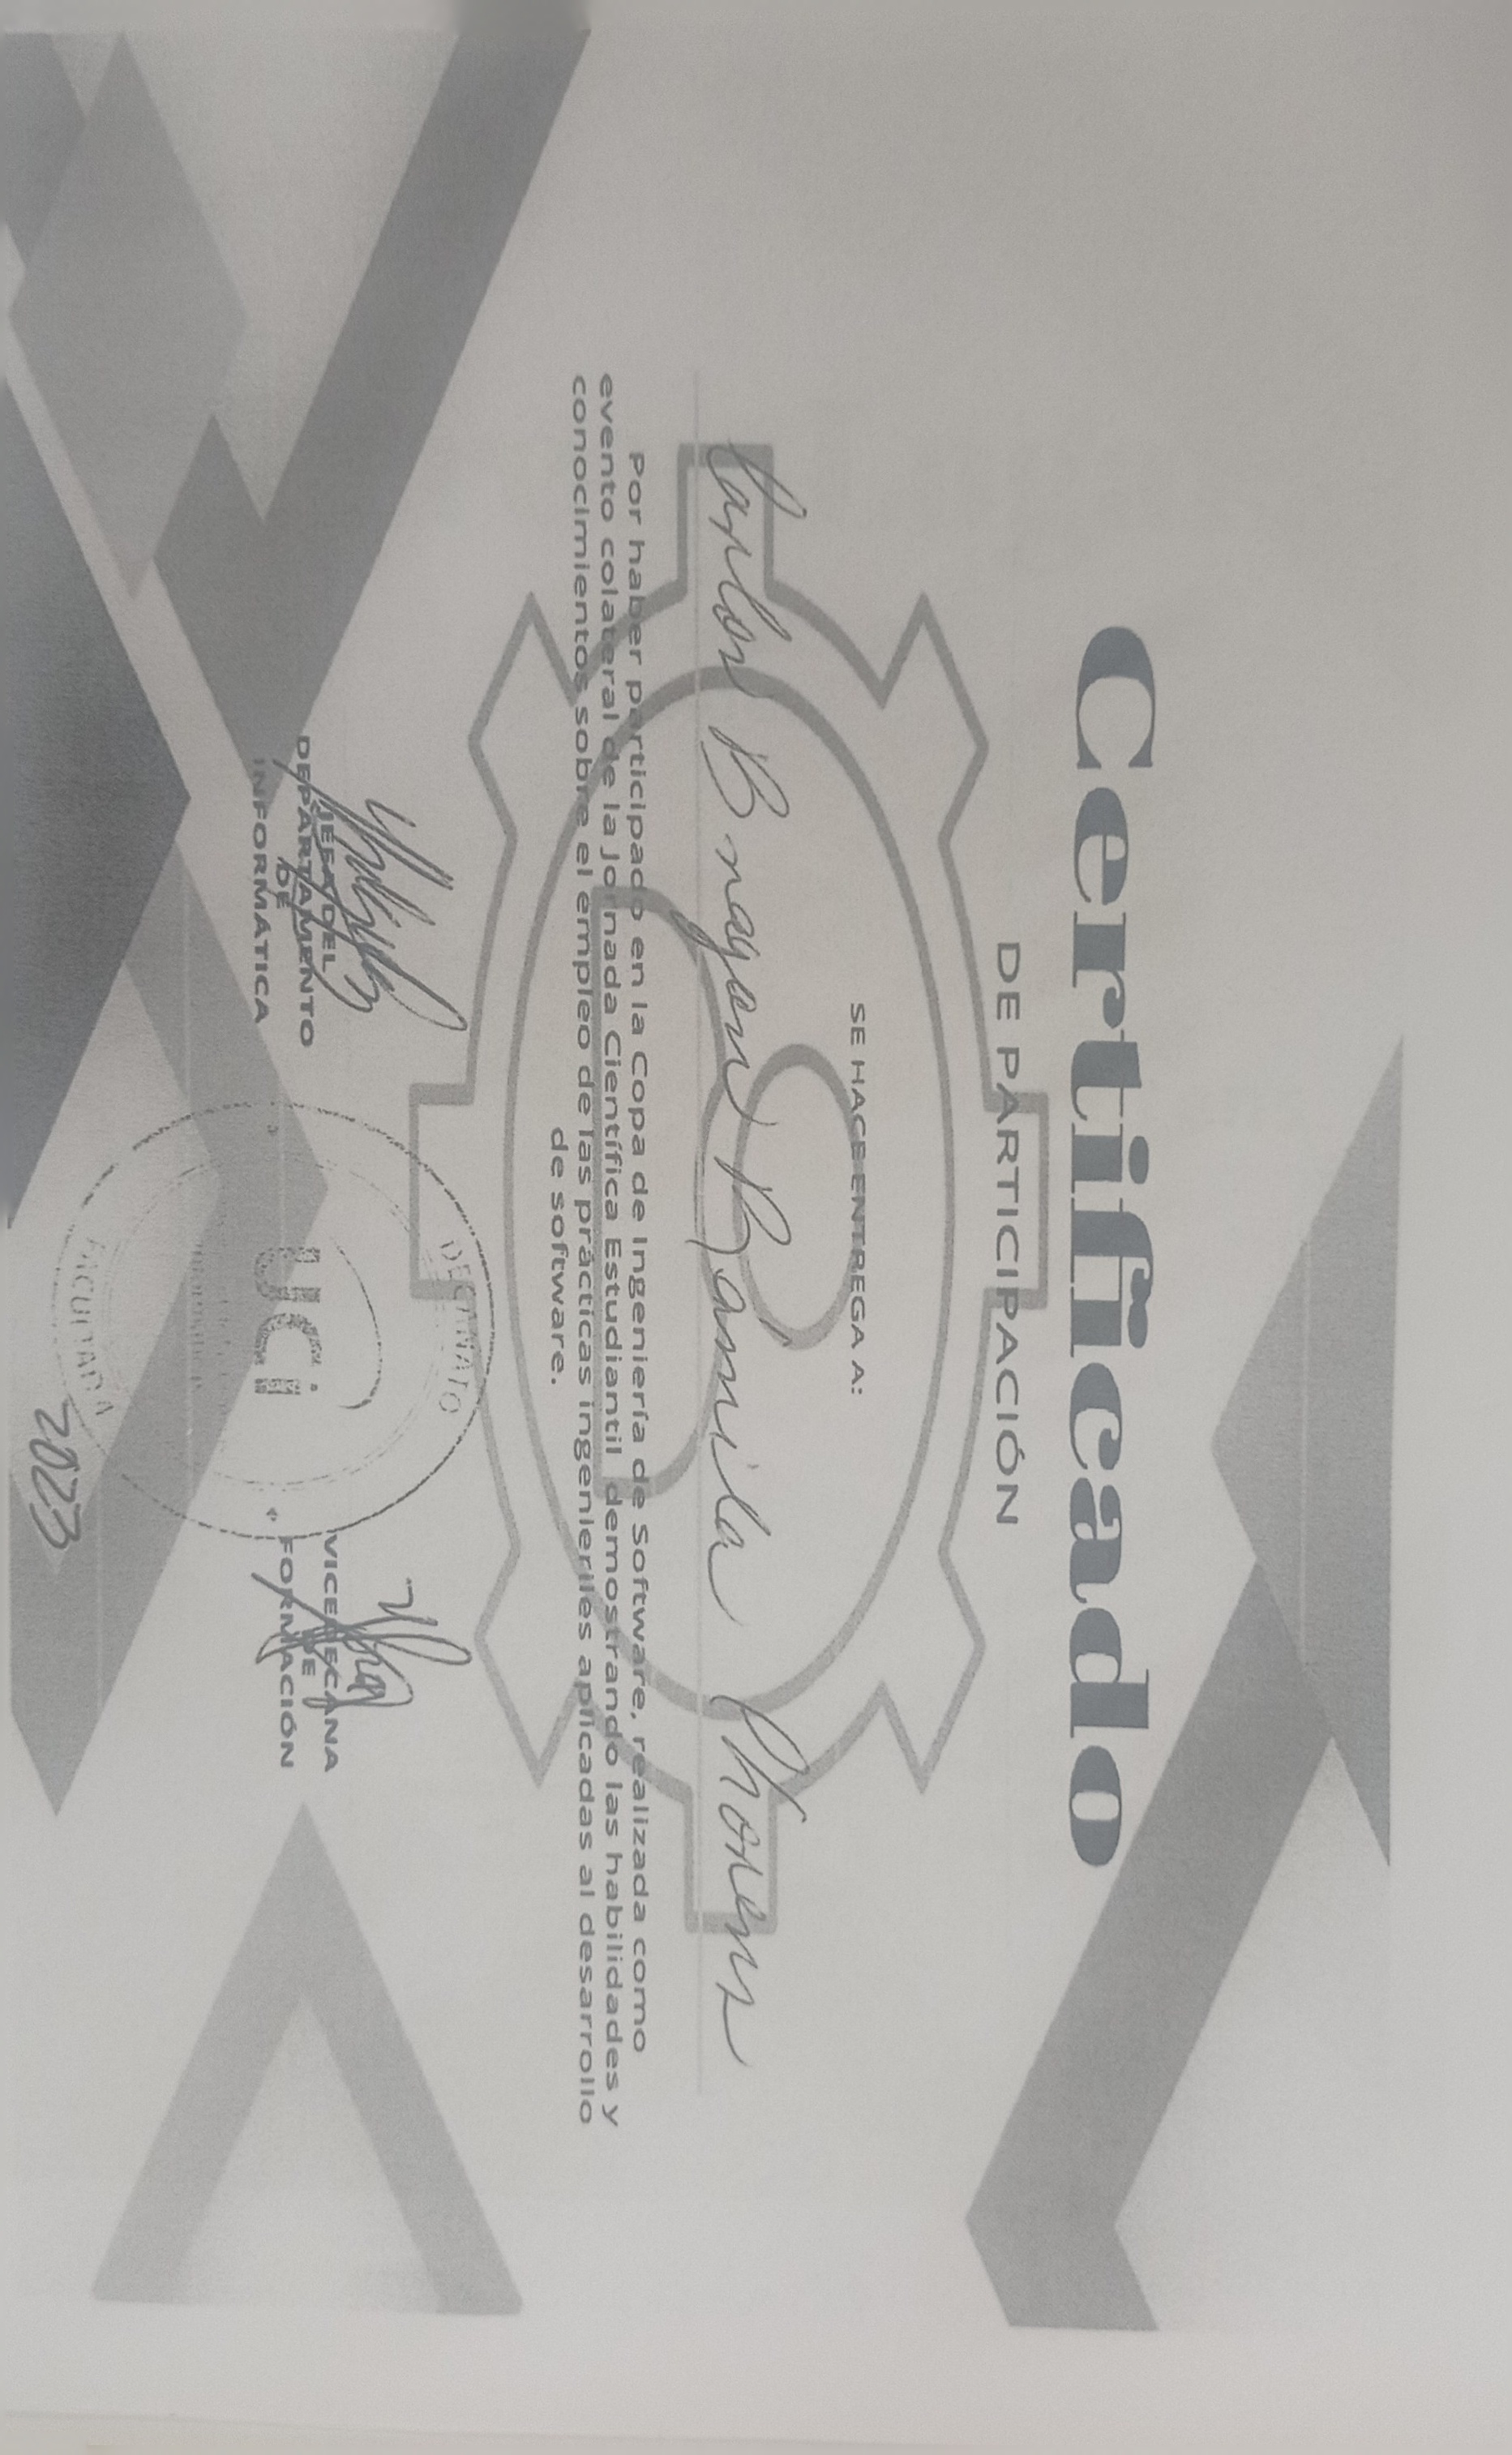 Certificado
DE PARTICIPACIÓN
SE HACE ENTREGA A:
Carlos Brayan Rámila Chorens
Por haber participado en la Copa de Ingeniería de Software, realizada como
evento colateral de la Jornada Científica Estudiantil demostrando las habilidades y
conocimientos sobre el empleo de las prácticas ingenieriles aplicadas al desarrollo
de software.
JEFA DEL
DEPARTAMENTO
DE
INFORMÁTICA
DECANATO
UCi
Informáticas
FACULTAD 4
VICEDECANA
DE
FORMACIÓN
2023